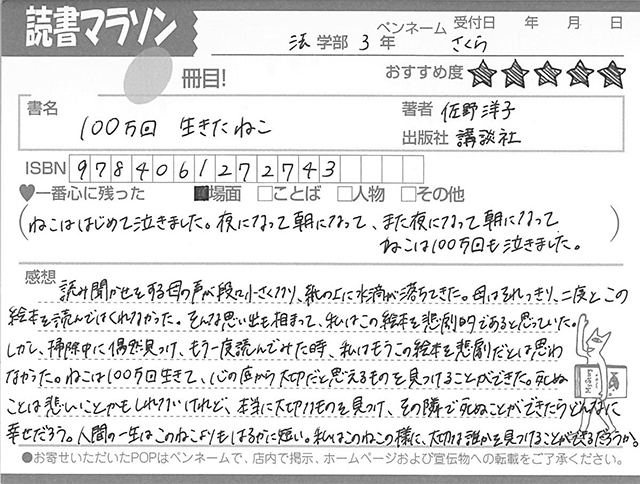 読書マラソン
法 学部 3 年 ペンネーム さくら 受付日 年 月 日
冊目! おすすめ度 ★★★★★
書名 100万回 生きたねこ
著者 佐野洋子
出版社 講談社
ISBN 9784061272743
♥一番心に残った ■場面 □ことば □人物 □その他
(ねこははじめて泣きました。夜になって朝になって、また夜になって朝になって
ねこは100万回も泣きました。)
感想 読み聞かせをする母の声が段々小さくなり、紙の上に水滴が落ちてきた。母はそれっきり、二度とこの
絵本を読んではくれなかった。そんな思い出も相まって、私はこの絵本を悲劇的であると思っていた。
しかし、掃除中に偶然見つけ、もう一度読んでみた時、私はもうこの絵本を悲劇だとは思わ
なかった。ねこは100万回生きて、心の底から大切だと思えるものを見つけることができた。死ぬ
ことは悲しいことかもしれないけれど、本当に大切なものを見つけ、その隣で死ぬことができたらどんなに
幸せだろう。人間の一生はこのねこよりもはるかに短い。私はこのねこの様に、大切な誰かを見つけることができるだろうか。
●お寄せいただいたPOPはペンネームで、店内で掲示、ホームページおよび宣伝物への転載をご了承ください。